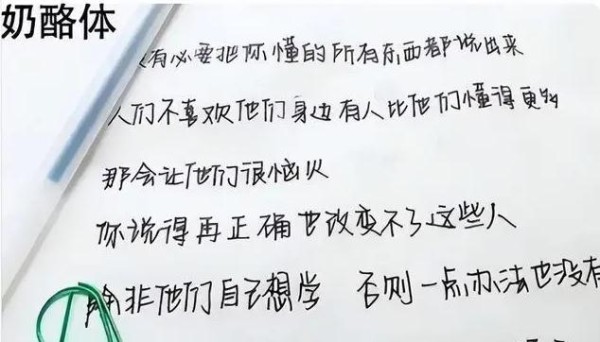 奶酪体
有必要把你懂的所有东西都说出来
人们不喜欢他们身边有人比他们懂得更多
那会让他们很恼火
你说得再正确也改变不了这些人
除非他们自己想学 否则一点办法也没有